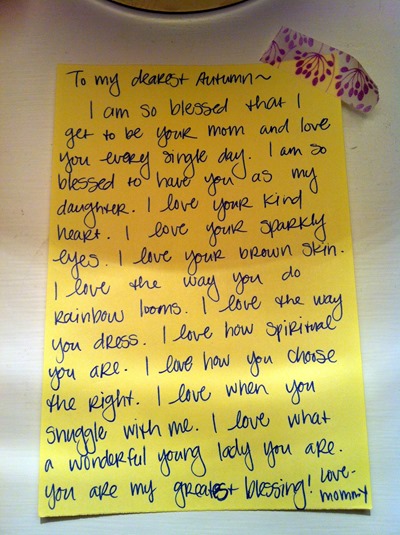 To my dearest Autumn~
I am so blessed that I
get to be your mom and love
you every single day. I am so
blessed to have you as my
daughter. I love your kind
heart. I love your sparkly
eyes. I love your brown skin.
I love the way you do
rainbow looms. I love the way
you dress. I love how spiritual
you are. I love how you choose
the right. I love when you
snuggle with me. I love what
a wonderful young lady you are.
you are my greatest blessing! Love-
mommy